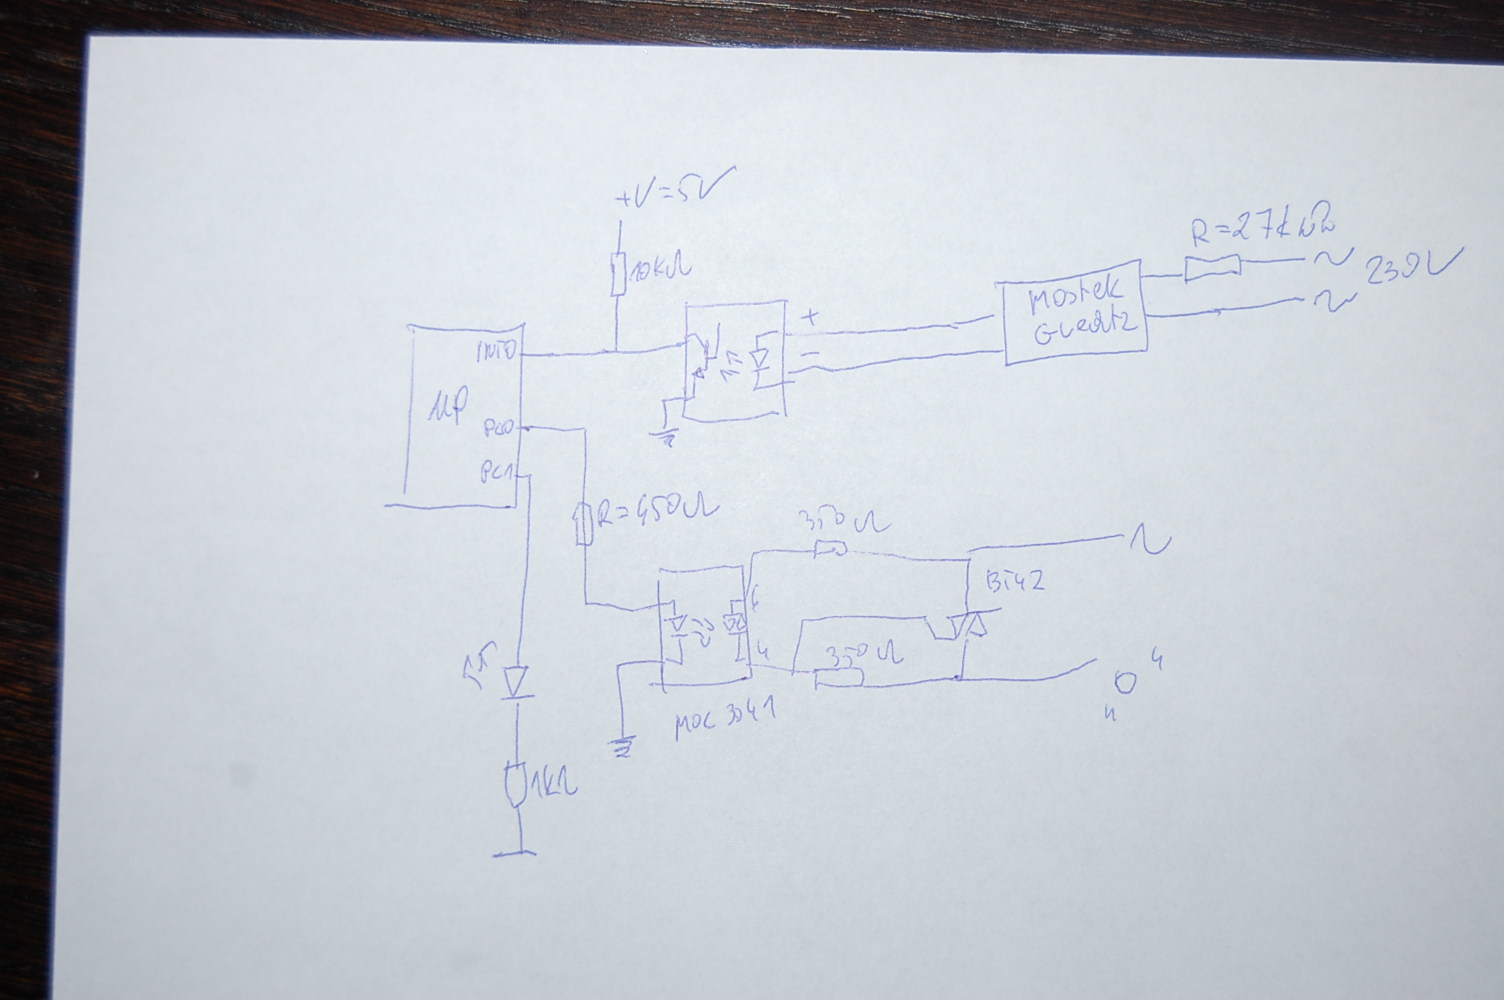 +V=5V
10kΩ
R=27kΩ
~
230V
~
Mostek
Gretz
+
-
INT0
μP
PC0
PC1
R=450Ω
350Ω
~
BT42
6
4
350Ω
MOC 3041
"0"
1kΩ